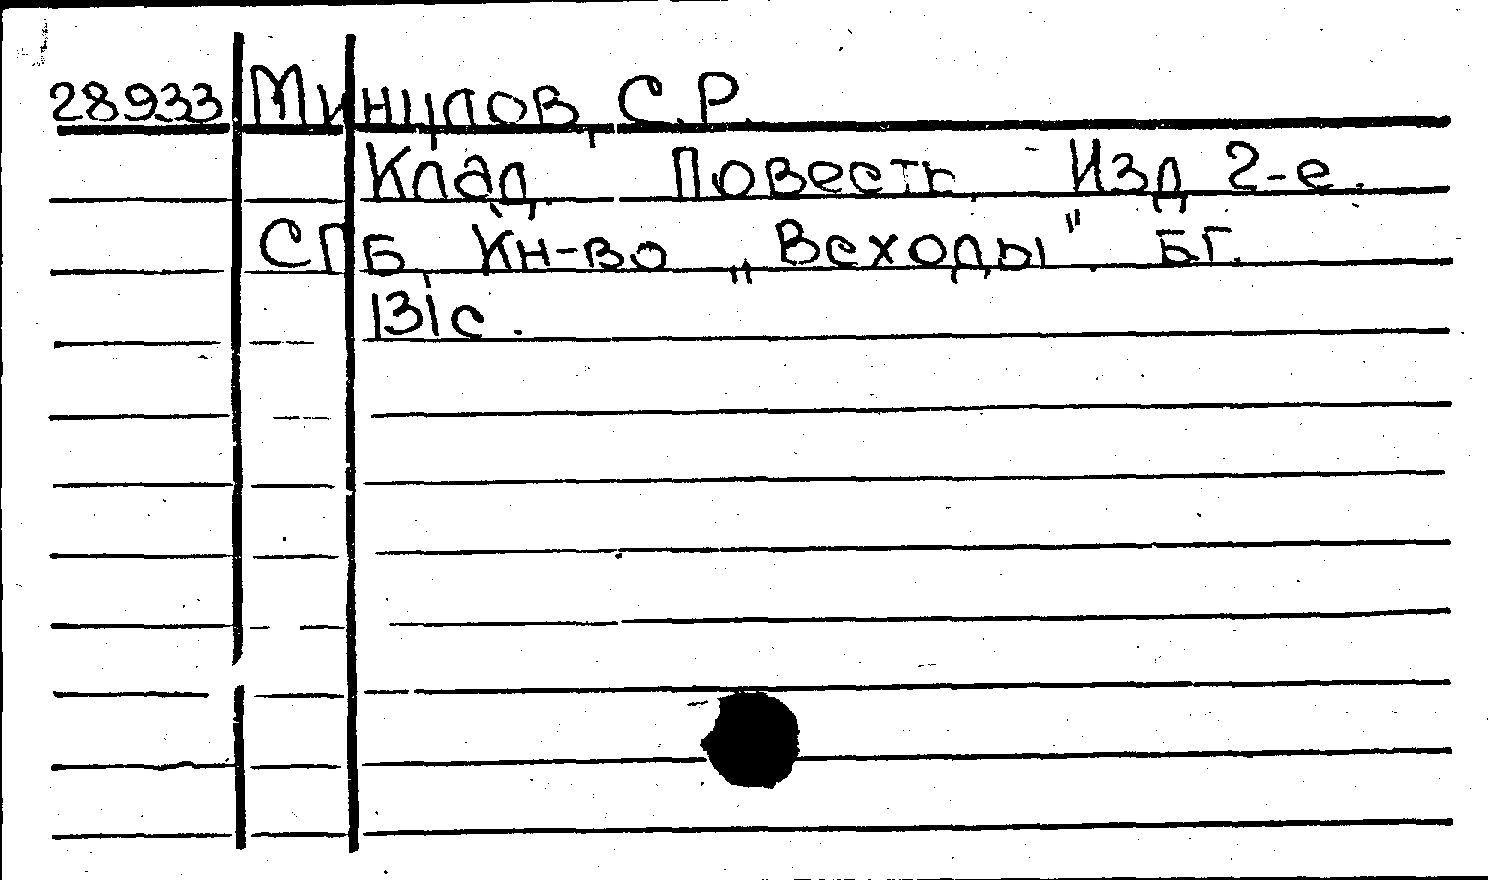 28933 Минцлов, С.Р.
Клад. Повесть. Изд. 2-е.
СПБ, Кн-во „Всходы". БГ.
131с.